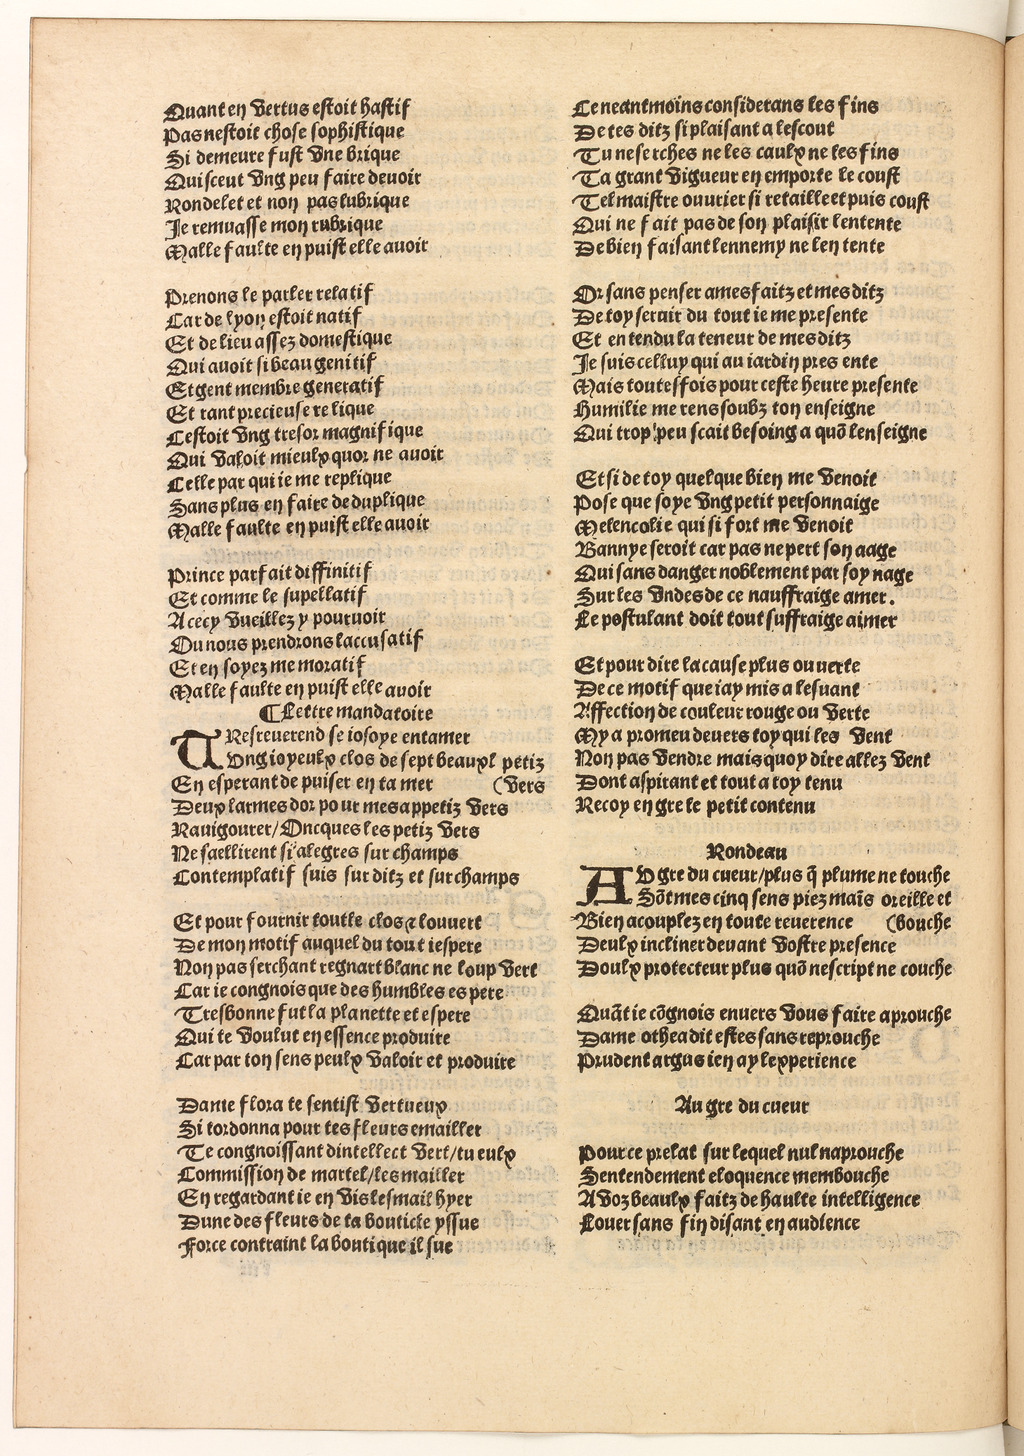 Quant en vertus estoit hastif
Pas nestoit chose sophistique
Si demeure fust vne brique
Qui sceut vng peu faire deuoir
Rondelet et non pas lubrique
Je remuasse mon rubrique
Malle faulte en puist elle auoir
Prenons le parler relatif
Car de lyon estoit natif
Et de lieu assez domestique
Qui auoit si beau genitif
Et gent membre generatif
Et tant precieuse relique
Cestoit vng tresor magnifique
Qui valoit mieulx quor ne auoir
Celle par qui ie me replique
Sans plus en faire de duplique
Malle faulte en puist elle auoir
Prince parfait diffinitif
Et comme le supellatif
A cecy vueillez y pouruoir
Ou nous prendrons laccusatif
Et en soyez memoratif
Malle faulte en puist elle auoir
¶ Lettre mandatoire
TResreuerend se iosoye entamer
Vng ioyeulx clos de sept beaulx petiz
En esperant de puiser en ta mer (vers
Deux larmes dor pour mes appetiz vers
Rauigourer/Oncques les petiz vers
Ne saellirent si alegres sur champs
Contemplatif suis sur ditz et sur champs
Et pour fournir toutle clos & louuert
De mon motif auquel du tout iespere
Non pas serchant regnart blanc ne loup vert
Car ie congnois que des humbles es pere
Tresbonne fut la planette et espere
Qui te voulut en essence produire
Car par ton sens peulx valoir et produire
Dame flora te sentist vertueux
Si tordonna pour tes fleurs emailler
Te congnoissant dintellect vert/tu eulx
Commission de martel/les mailler
En regardant ie en vis lesmail hyer
Dune des fleurs de ta bouticle yssue
Force contraint la boutique il sue
Ce neantmoins considerans les fins
De tes ditz si plaisant a lescout
Tu ne serches ne les caulx ne les fins
Ta grant vigueur en emporte le coust
Tel maistre ouurier si retaille et puis coust
Qui ne fait pas de son plaisir lentente
De bien faisant lennemy ne len tente
Or sans penser a mes faitz et mes ditz
De toy seruir du tout ie me presente
Et entendu la teneur de mes ditz
Je suis celluy qui au iardin pres ente
Mais toutesfois pour ceste heure presente
Humilie me rens soubz ton enseigne
Qui trop peu scait besoing a quō lenseigne
Et si de toy quelque bien me venoit
Pose que soye vng petit personnaige
Melencolie qui si fort me venoit
Bannye seroit car pas ne pert son aage
Qui sans danger noblement par soy nage
Sur les vndes de ce nauffraige amer.
Le postulant doit tout suffraige aimer
Et pour dire la cause plus ouuerte
De ce motif que iay mis a lesuant
Affection de couleur rouge ou verte
My a promeu deuers toy qui les vent
Non pas vendre mais quoy dire allez vent
Dont aspirant et tout a toy tenu
Recoy en gre le petit contenu
Rondeau
AV gre du cueur/plus q̄ plume ne touche
Sōt mes cinq sens piez mains oreille et
Bien acouplez en toute reuerence (bouche
Deulx incliner deuant vostre presence
Doulx protecteur plus quō nescript ne couche
Quāt ie cōgnois enuers vous faire aprouche
Dame othea dit estes sans reprouche
Prudent argus ien ay lexperience
Au gre du cueur
Pour ce prelat sur lequel nul naprouche
Sentendement eloquence membouche
A voz beaulx faitz de haulte intelligence
Louer sans fin disant en audience